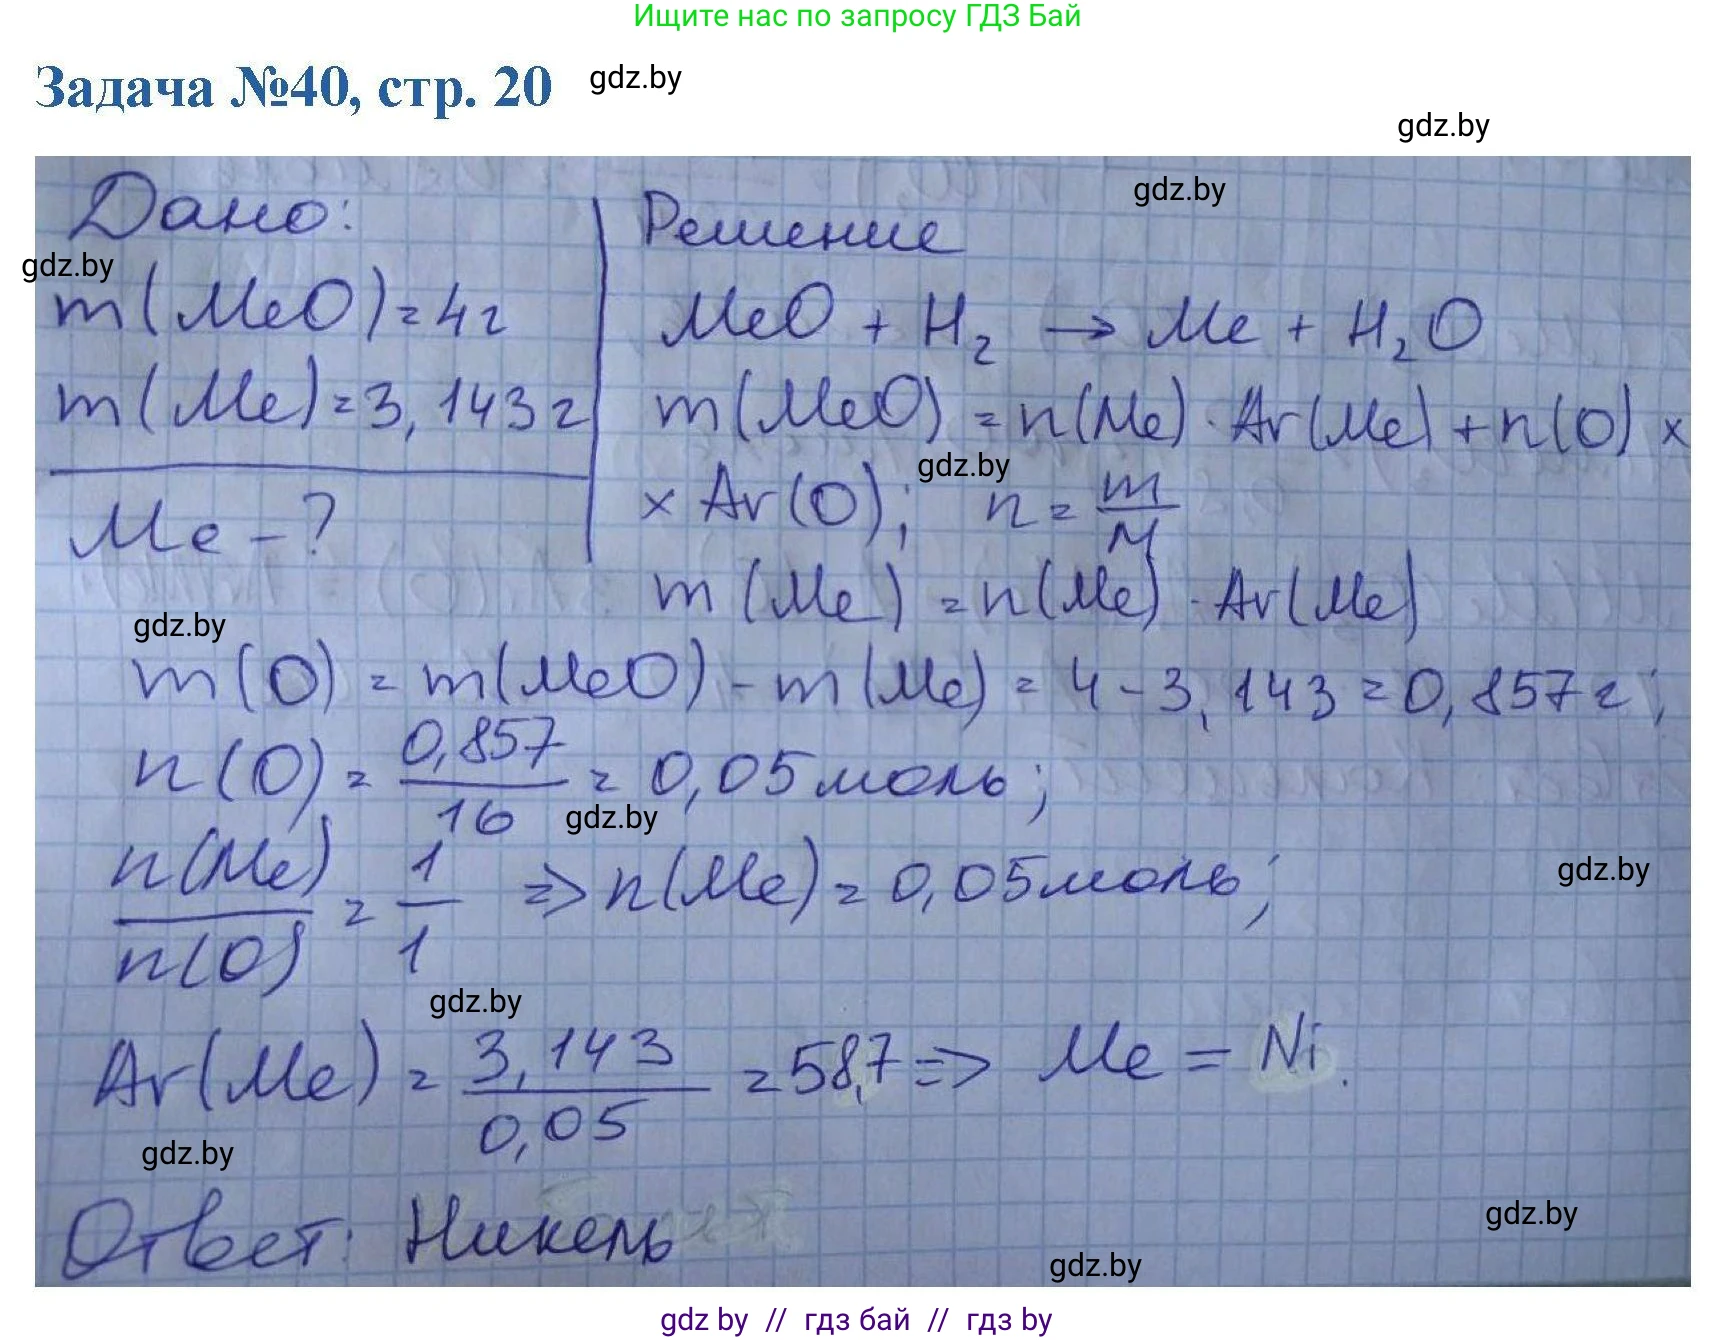 Ищите нас по запросу ГДЗ Бай
Задача №40, стр. 20 gdz.by
gdz.by
gdz.by
Дано:
Решение
gdz.by
m(MeO)=4г
MeO + H₂ → Me + H₂O
m(Me)=3,143г
m(MeO) = n(Me)·Ar(Me)+n(O) ×
gdz.by
× Ar(O); n = m/M
Me - ?
m(Me) = n(Me)·Ar(Me)
gdz.by
m(O) = m(MeO) - m(Me) = 4 - 3,143 = 0,857г;
n(O) = 0,857/16 = 0,05моль;
gdz.by
n(Me)/n(O) = 1/1 => n(Me) = 0,05моль;
gdz.by
gdz.by
Ar(Me) = 3,143/0,05 = 58,7 => Me = Ni.
gdz.by
Ответ: Никель
gdz.by
gdz.by
gdz by // гдз бай // гдз by